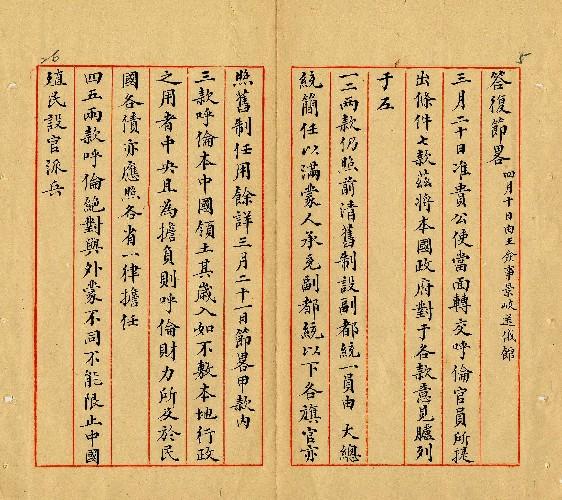 5
答復節畧 四月十日由王僉事景岐送俄館
三月二十日准貴公使當面轉交呼倫官員所提
出條件七款茲將本國政府對于各款意見臚列
于左
一二兩款仍照前清舊制設副都統一員由 大總
統簡任以滿蒙人承充副都統以下各旗官亦
照舊制任用餘詳三月二十一日節畧甲款內
三款呼倫本中國領土其歲入如不敷本地行政
之用者中央且為擔負則呼倫財力所及於民
國各債亦應照各省一律擔任
四五兩款呼倫絕對與外蒙不同不能限止中國
殖民設官派兵